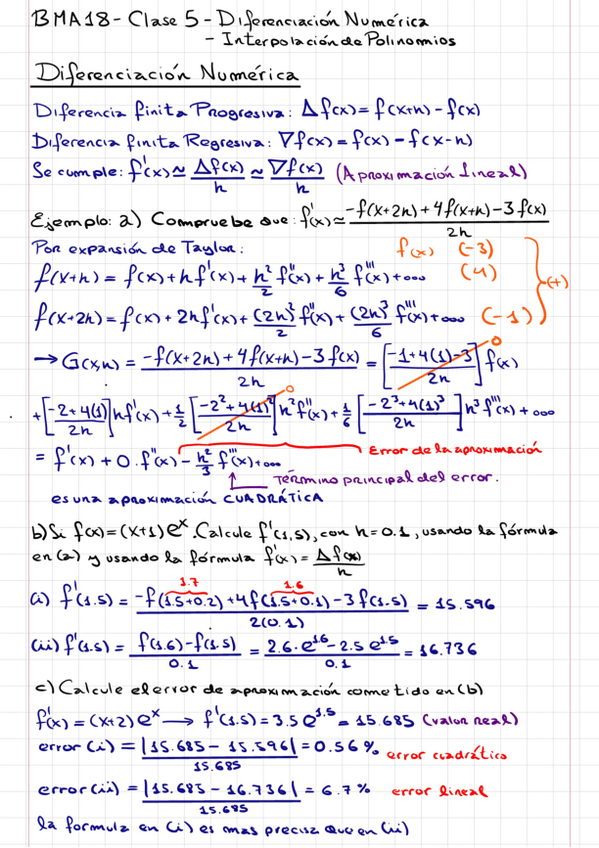 BMA18 - Clase 5 - Diferenciación Numérica
- Interpolación de Polinomios
Diferenciación Numérica
Diferencia finita Progresiva: Δf(x) = f(x+h) - f(x)
Diferencia finita Regresiva: ∇f(x) = f(x) - f(x-h)
Se cumple: f'(x) ≈ Δf(x)/h ≈ ∇f(x)/h (Aproximación lineal)
Ejemplo: a) Compruebe que: f'(x) ≈ (-f(x+2h) + 4f(x+h) - 3f(x))/2h
Por expansión de Taylor: f(x) (-3)
f(x+h) = f(x) + hf'(x) + h²/2 f''(x) + h³/6 f'''(x) + ... (4) (+)
f(x+2h) = f(x) + 2hf'(x) + (2h)²/2 f''(x) + (2h)³/6 f'''(x) + ... (-1)
→ G(x,h) = (-f(x+2h) + 4f(x+h) - 3f(x))/2h = [(-1+4(1)-3)/2h] f(x) 0
+ [(-2+4(1))/2h] hf'(x) + 1/2 [(-2²+4(1)²)/2h] h²f''(x) 0 + 1/6 [(-2³+4(1)³)/2h] h³f'''(x) + ...
= f'(x) + 0·f''(x) - h²/3 f'''(x) + ... Error de la aproximación
Término principal del error.
es una aproximación CUADRÁTICA
b) Si f(x) = (x+1)eˣ. Calcule f'(1,5), con h=0.1, usando la fórmula
en (a) y usando la fórmula f'(x) = Δf(x)/h
(i) f'(1.5) = (-f(1.5+0.2) + 4f(1.5+0.1) - 3f(1.5))/2(0.1) = 15.596
1.7 1.6
(ii) f'(1.5) = (f(1.6) - f(1.5))/0.1 = (2.6·e^1.6 - 2.5 e^1.5)/0.1 = 16.736
c) Calcule el error de aproximación cometido en (b)
f'(x) = (x+2)eˣ → f'(1.5) = 3.5 e^1.5 = 15.685 (valor real)
error (i) = |15.685 - 15.596|/15.685 = 0.56 % error cuadrático
error (ii) = |15.685 - 16.736|/15.685 = 6.7 % error lineal
la formula en (i) es mas precisa que en (ii)